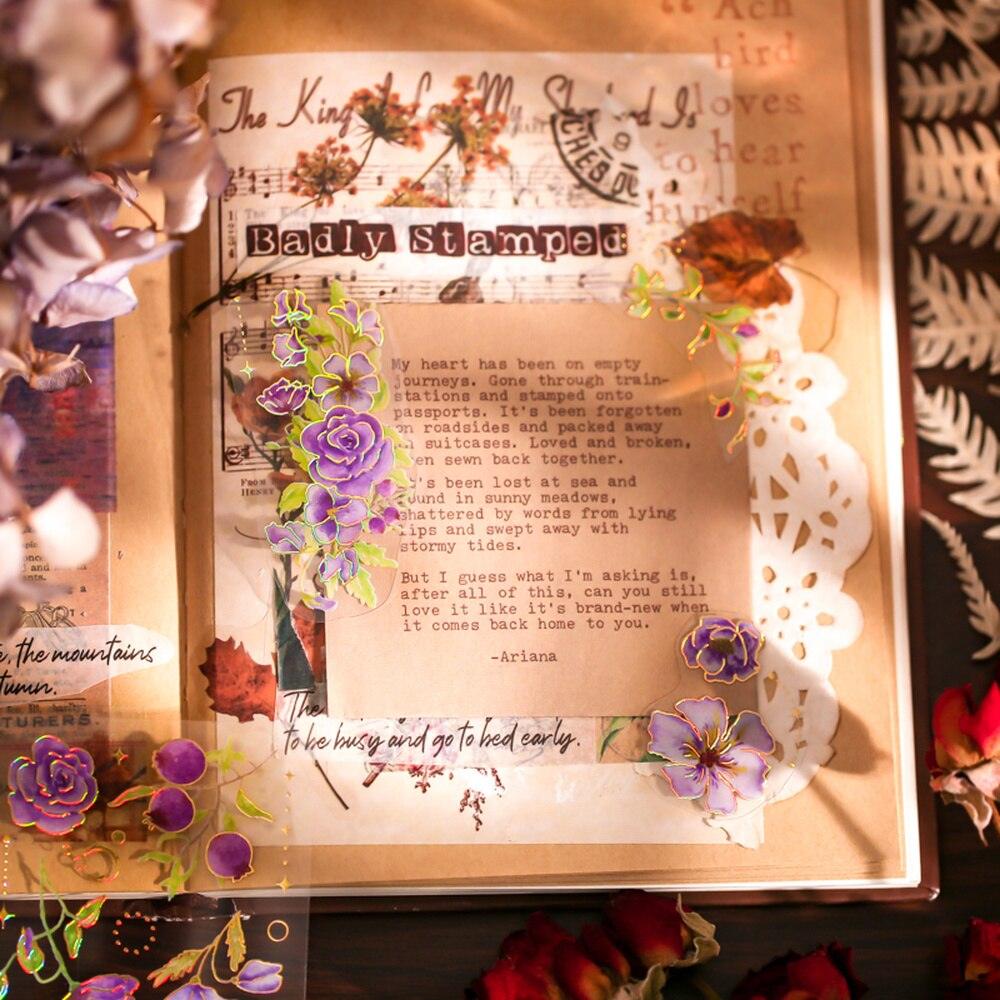 “ Ach
bird
loves
to hear
himself
The King Of Love My Shepherd Is
CHEB
9
Badly Stamped
My heart has been on empty
journeys. Gone through train-
stations and stamped onto
passports. It's been forgotten
on roadsides and packed away
in suitcases. Loved and broken,
then sewn back together.
It's been lost at sea and
found in sunny meadows,
shattered by words from lying
lips and swept away with
stormy tides.
But I guess what I'm asking is,
after all of this, can you still
love it like it's brand-new when
it comes back home to you.
-Ariana
FROM
HENRY
The
to be busy and go to bed early.
the mountains
tumn.
TURERS.